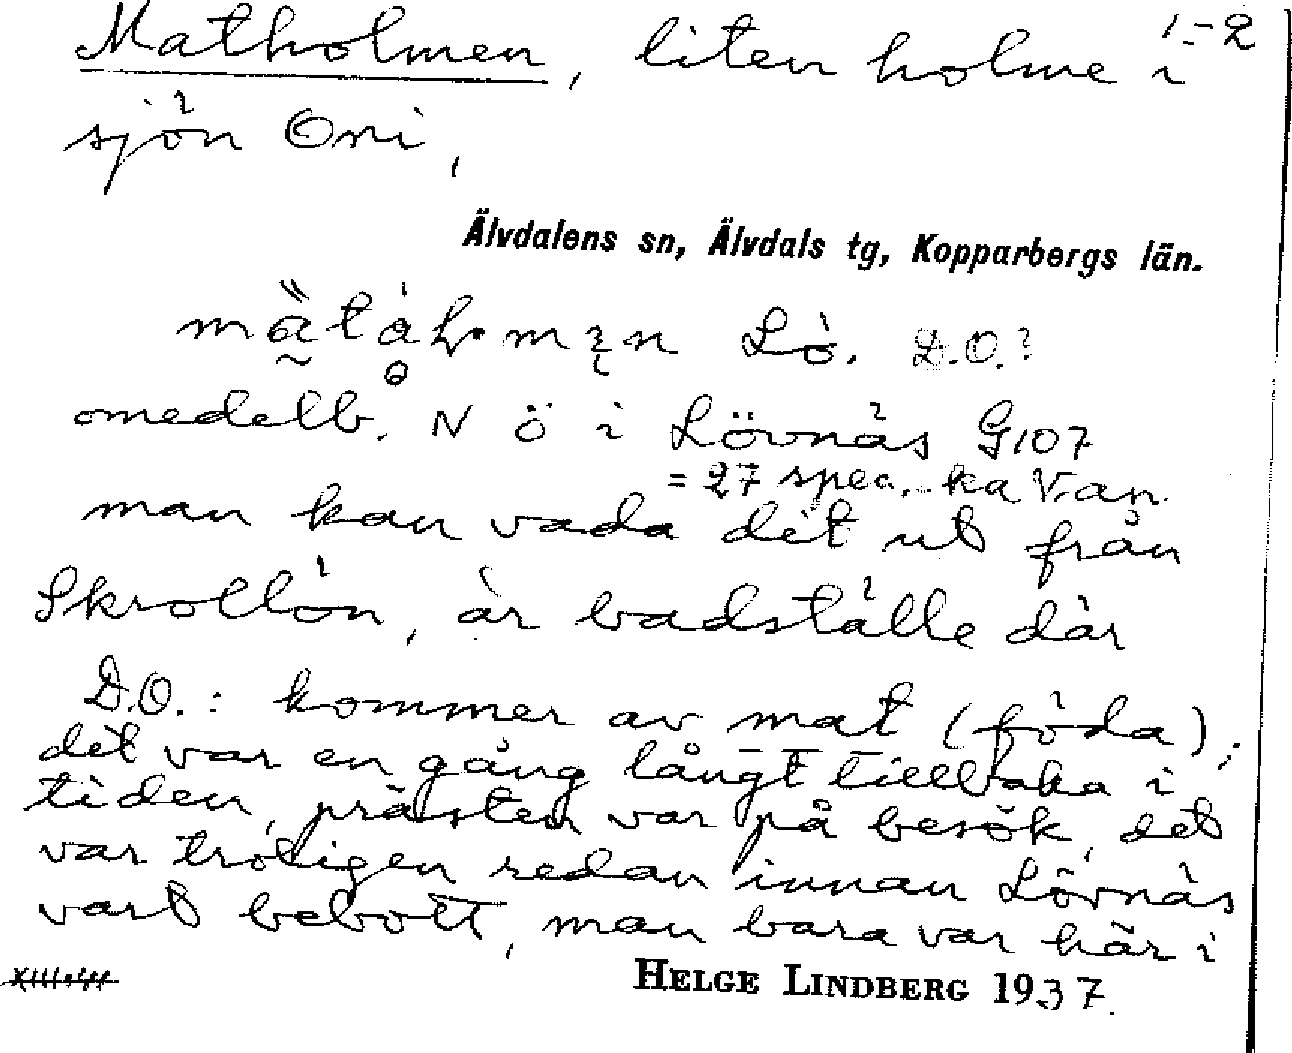 Matholmen, liten holme i 1-2
sjön Oni,
Älvdalens sn, Älvdals tg, Kopparbergs län.
Lö. D.O.?
omedelb. N ö i Lövnäs G107
= 27 spec. ka V.an.
man kan vada dit ut från
Skrollön, är badställe där
D.O.: kommer av mat (föda);
det var en gång långt tillbaka i
tiden, prästen var på besök, det
var troligen redan innan Lövnäs
vart bebott, man bara var här i
XIII:44
HELGE LINDBERG 1937.